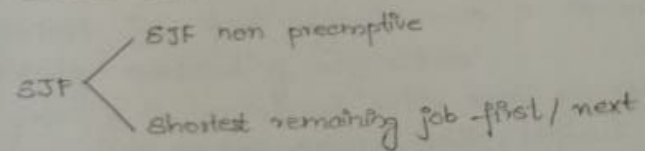 SJF non preemptive
SJF
Shortest remaining job first / next